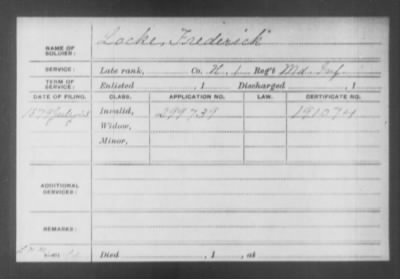 NAME OF SOLDIER: Locke, Frederick
SERVICE: Late rank, Co. H, 1 Reg't Md. Inf.
TERM OF SERVICE: Enlisted , 1 Discharged , 1
DATE OF FILING. CLASS. APPLICATION NO. LAW. CERTIFICATE NO.
1879 July Invalid, 299739 191074
Widow,
Minor,
ADDITIONAL SERVICES:
REMARKS:
Died , 1 , at